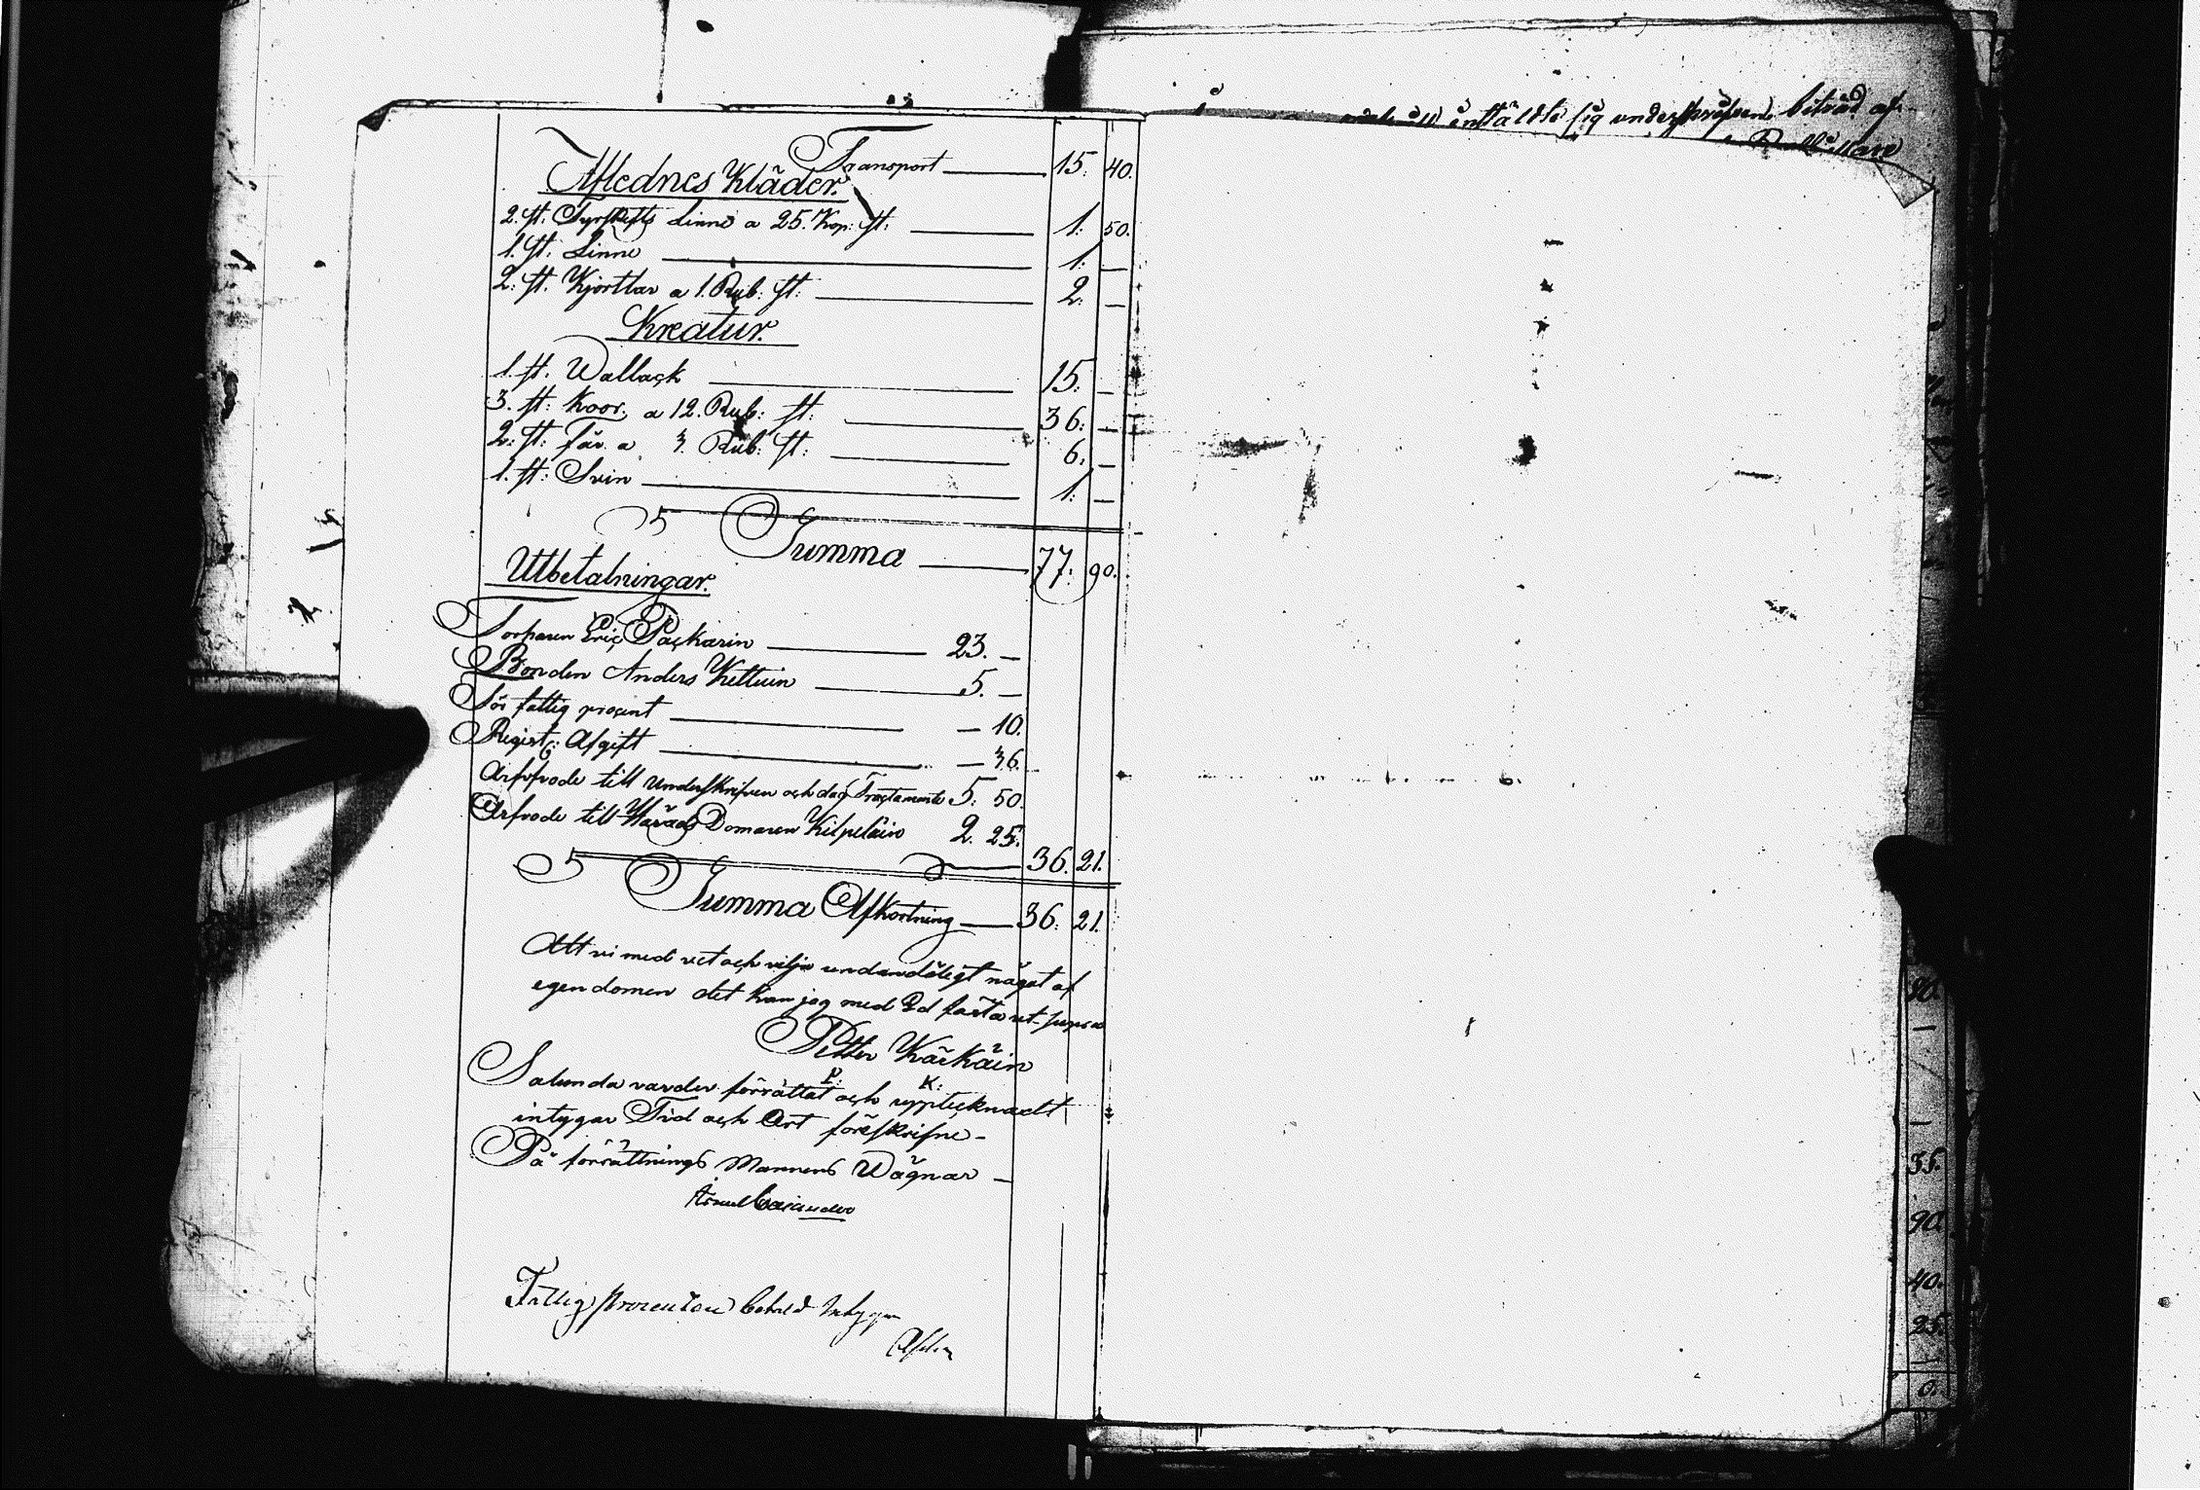 Transport 15. 40.
Aflednes Kläder.
2. st: Linne a 25. Kop: st: 1. 50.
1. st: Linne 1. —
2. st. Kjortlar a 1. Rub: st: 2. —
Kreatur.
1. st. Wallack 15. —
3. st: Koor. a 12. Rub: st: 36. —
2: st: Får a 3. Rub: st: 6. —
1. st: Svin 1. —
Summa 77. 90.
Utbetalningar.
Torparen Eric Packarin 23. —
Bonden Anders Kettuin 5. —
För fattig procent — 10.
Regist: Afgift — 36.
Arfvode till Underskrifven och dag Tractamente 5. 50.
Arfvode till Härads Domaren Kilpeläin 2. 25.
36. 21.
Summa Afkortning 36. 21.
Att vi med vet och vilja undandöligt något af
egendomen det kan jag med Ed fästa ut supra
Petter Kärkäin
P. K:
Salunda varder förrättat och upptecknadt
intygar Tid och Ort föreskrifne -
På förrättnings Mannens Wägnar -
Cajander
Fattig procenten betald Intygar
20.
35.
90
40.
25.
0.
underskrifven, biträd af